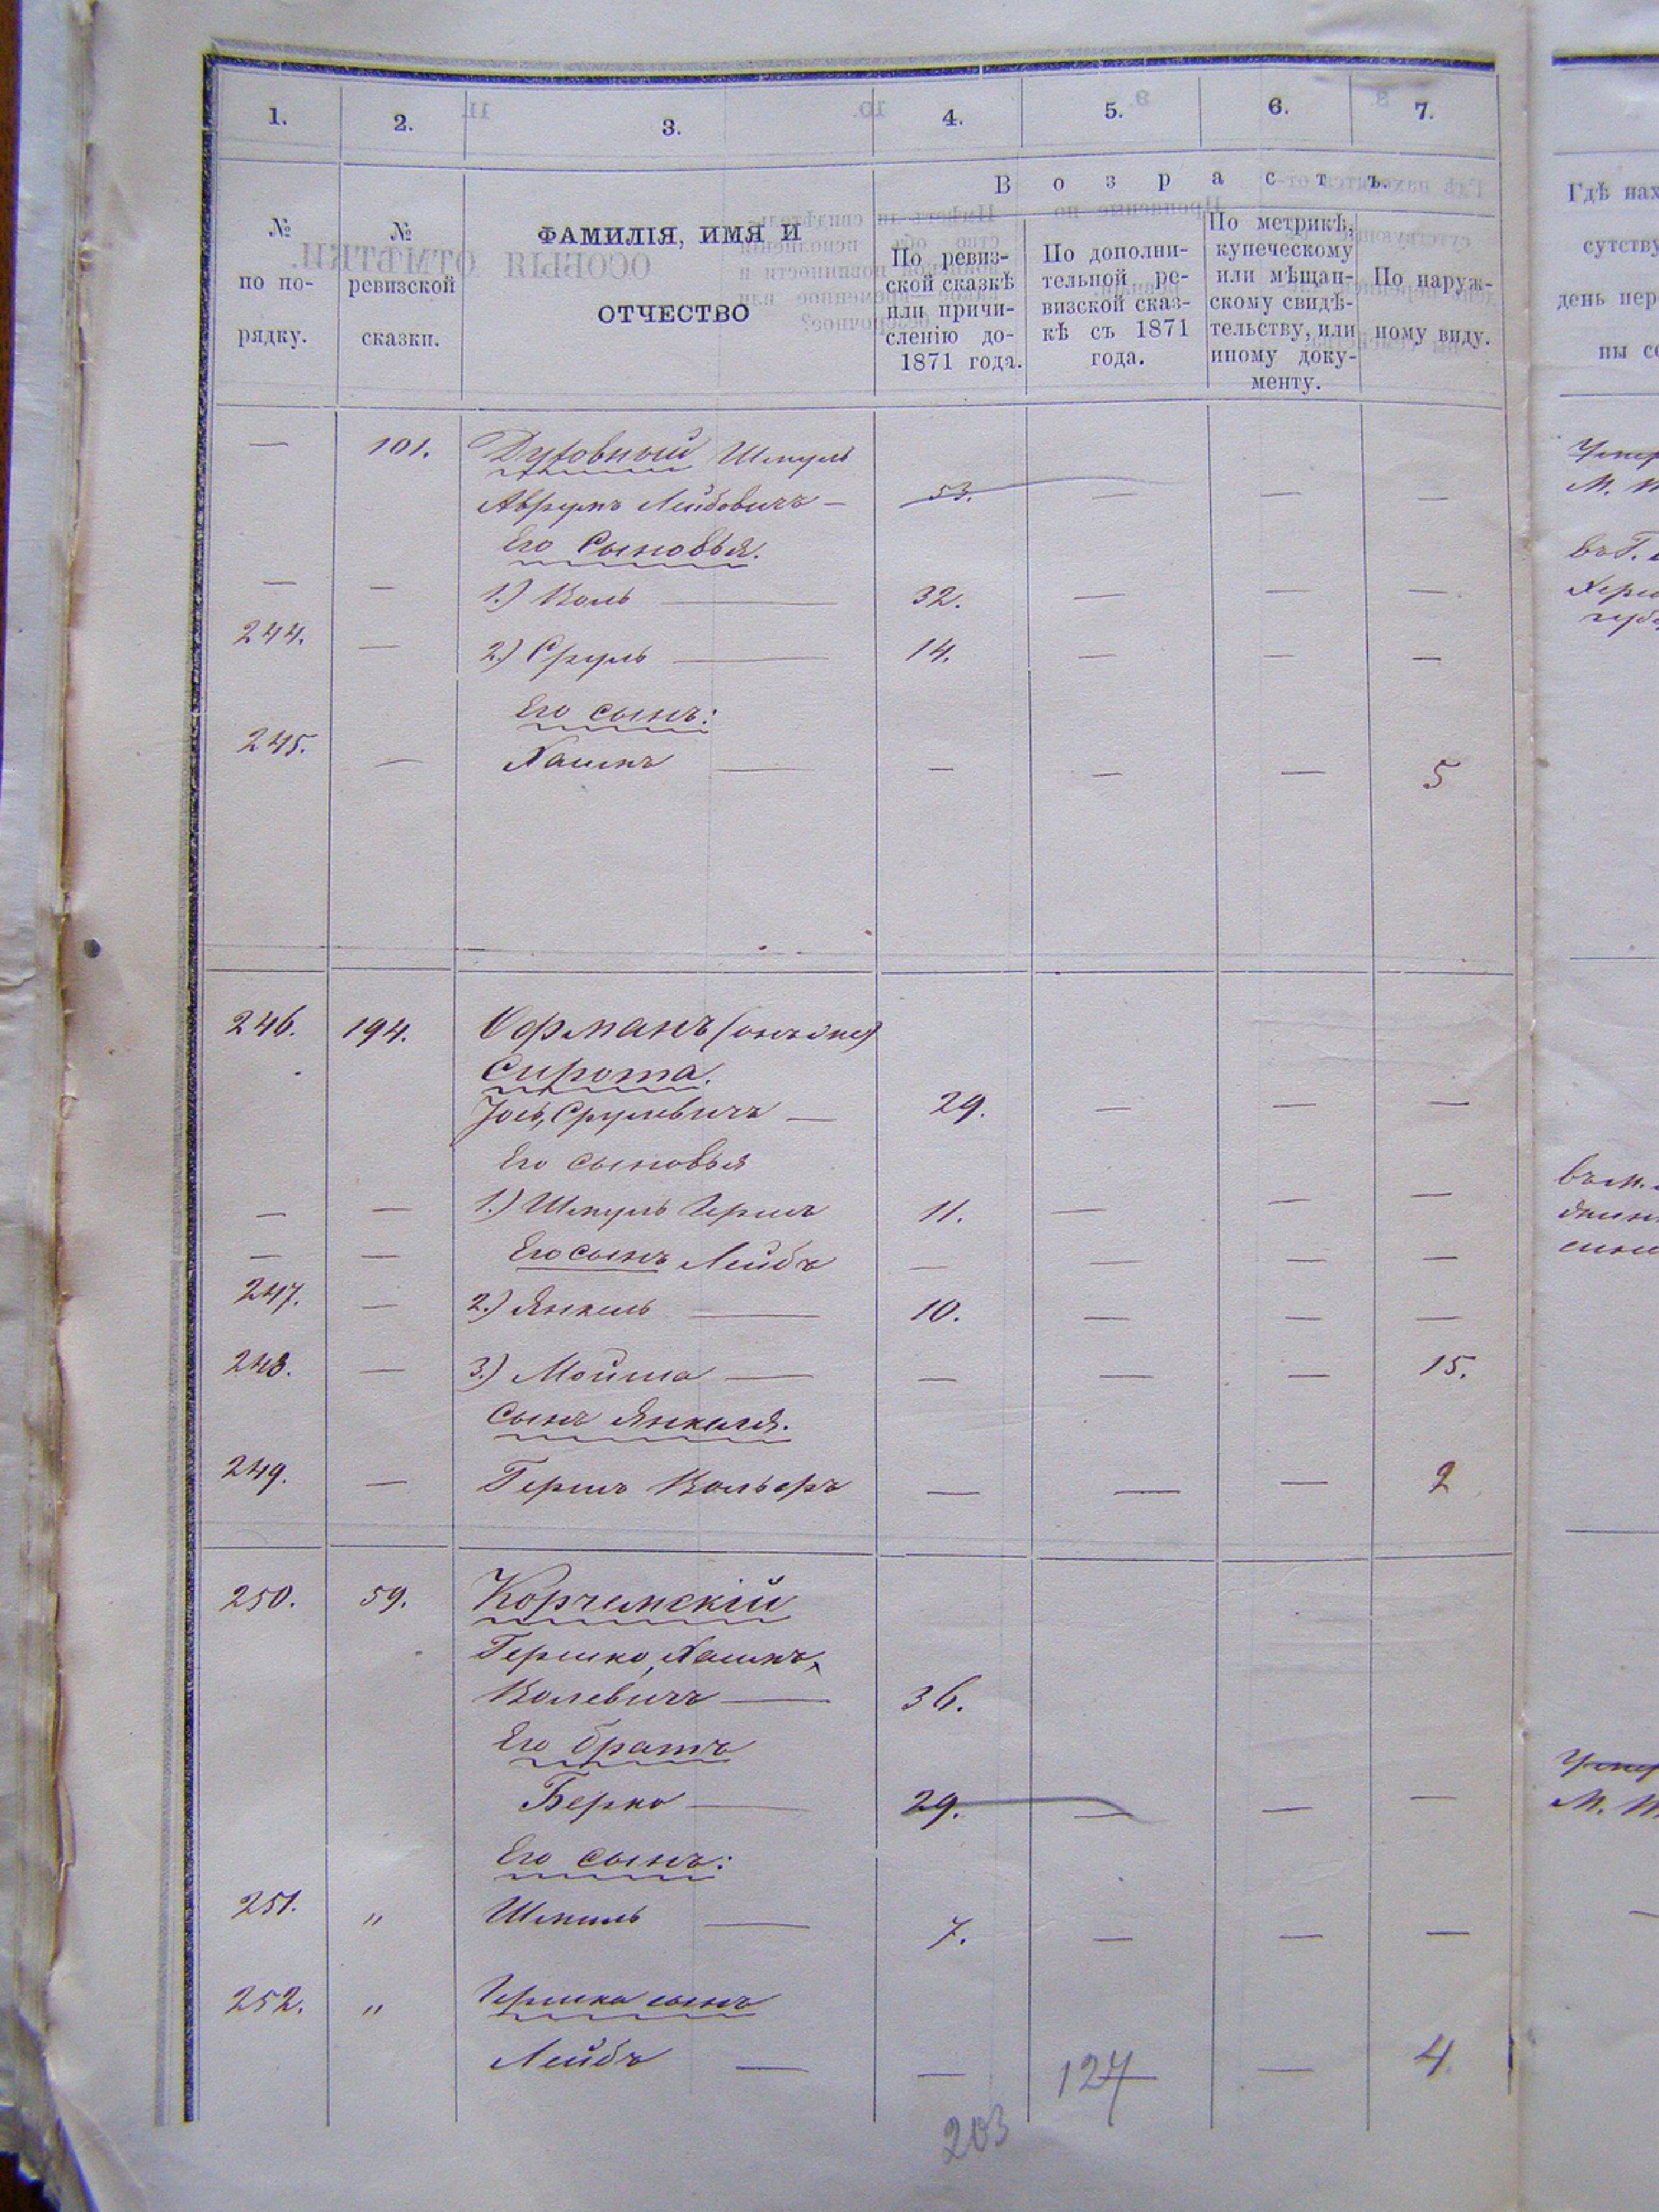 1. 2. 3. 4. 5. 6. 7.
№ по по-рядку.
№ ревизской сказки.
ФАМИЛІЯ, ИМЯ И
ОТЧЕСТВО
В о з р а с т ъ.
По ревиз-
ской сказкѣ
или причи-
сленію до-
1871 года.
По дополни-
тельной ре-
визской сказ-
кѣ съ 1871
года.
По метрикѣ,
купеческому
или мѣщан-
скому свидѣ-
тельству, или
иному доку-
менту.
По наруж-
ному виду.
— 101. Духовный Шмуль
Аврумъ Лейбовичъ — 53. — — —
Его Сыновья.
— — 1.) Воль — 32. — — —
244. — 2.) Сруль — 14. — — —
Его сынъ:
245. — Хаимъ — — — — 5
246. 194. Офманъ (онъ же)
Сирота.
Іось, Срулевичъ — 29. — — —
Его сыновья
— — 1.) Шмуль Гершъ 11. — — —
— — Его сынъ Лейбъ — — — —
247. — 2.) Янкель — 10. — — —
248. — 3.) Мойша — — — — 15.
Сынъ Янкеля.
249. — Гершъ Вольфъ — — — 2
250. 59. Корчемскій
Гершко, Хаимъ,
Волевичъ — 36.
Его братъ
Берко — 29. — — —
Его сынъ:
251. " Шмиль — 7. — — —
252. " Гершка сынъ
Лейбъ — — — 4
127
203
Гдѣ нах
сутству
день пер
М.
въ Г.
въ м.
М.